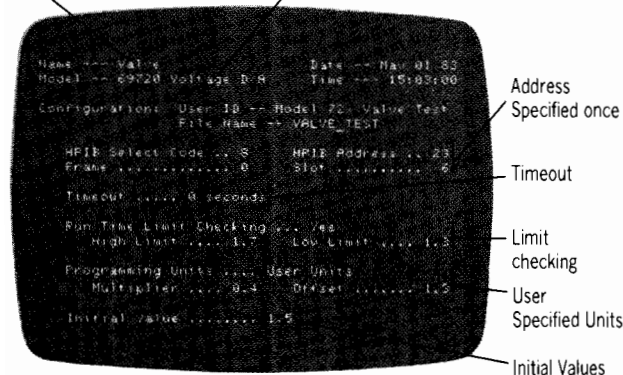 Name --- Valve Date -- May 01 83
Model -- 69720 Voltage D A Time --- 15:03:00
Configuration: User ID -- Model 72: Valve Test
File Name -- VALVE_TEST
HPIB Select Code .. 8 HPIB Address .. 23
Frame ............. 0 Slot .......... 6
Timeout ..... 0 seconds
Run Time Limit Checking ... Yes
High Limit .... 1.7 Low Limit .... 1.3
Programming Units .... User Units
Multiplier .... 0.4 Offset ....... 1.5
Initial Value ........ 1.5
Address
Specified once
Timeout
Limit
checking
User
Specified Units
Initial Values